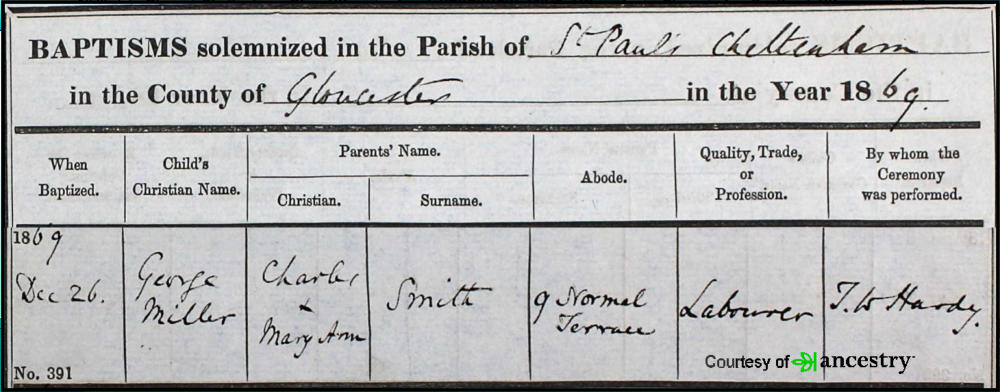 BAPTISMS solemnized in the Parish of St Paul's Cheltenham
in the County of Gloucester in the Year 1869.
When Baptized.
Child's Christian Name.
Parents' Name.
Christian.
Surname.
Abode.
Quality, Trade, or Profession.
By whom the Ceremony was performed.
1869
Dec 26.
George
Miller
Charles
&
Mary Ann
Smith
9 Normal
Terrace
Labourer
T. W Hardy.
No. 391
Courtesy of ancestry